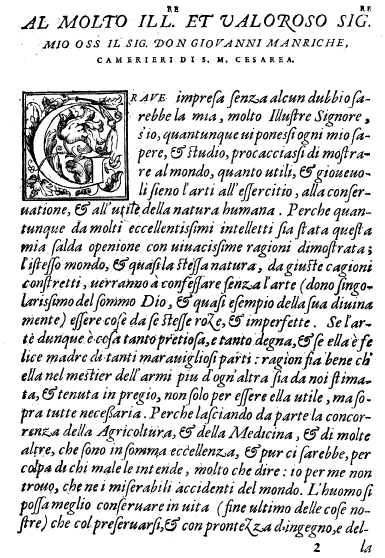 AL MOLTO ILL.RE ET VALOROSO SIG.RE
MIO OSS IL SIG. DON GIOVANNI MANRICHE,
CAMERIERI DI S. M. CESAREA.
GRAVE impresa senza alcun dubbio sa-
rebbe la mia, molto Illustre Signore,
s'io, quantunque ui ponessi ogni mio sa-
pere, & studio, procacciassi di mostra-
re al mondo, quanto utili, & gioueuo-
li sieno l'arti all'essercitio, alla conser-
uatione, & all'utile della natura humana. Perche quan-
tunque da molti eccellentissimi intelletti sia stata questa
mia salda openione con uiuacissime ragioni dimostrata;
l'istesso mondo, & quasi la stessa natura, da giuste cagioni
constretti, uerranno à confessare senza l'arte (dono singo-
larissimo del sommo Dio, & quasi esempio della sua diuina
mente) essere cose da se stesse roze, & imperfette. Se l'ar-
te dunque è cosa tanto pretiosa, e tanto degna, & se ella è fe
lice madre di tanti marauigliosi parti: ragion fia bene ch'
ella nel mestier dell'armi più d'ogn'altra sia da noi stima-
ta, & tenuta in pregio, non solo per essere ella utile, ma so-
pra tutte necessaria. Perche lasciando da parte la concor-
renza della Agricoltura, & della Medicina, & di molte
altre, che sono in somma eccellenza, & pur ci sarebbe, per
colpa di chi male le intende, molto che dire: io per me non
trouo, che ne i miserabili accidenti del mondo. L'huomo si
possa meglio conseruare in uita (fine ultimo delle cose no-
stre) che col preseruarsi, & con prontezza d'ingegno, e del-
2 la